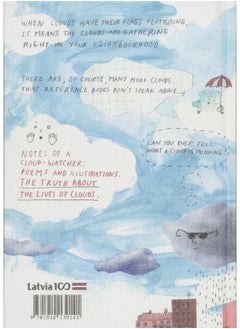 WHEN CLOUDS HAVE THEIR FLAGS FLUTTERING,
IT MEANS THE CLOUDS ARE GATHERING
RIGHT IN YOUR NEIGHBOURHOOD
THERE ARE, OF COURSE MANY MORE CLOUDS
THAT REFERENCE BOOKS DON'T SPEAK ABOUT...
CAN YOU EVER TELL
WHAT A CLOUD IS THINKING?
NOTES OF A
CLOUD-WATCHER:
POEMS AND ILLUSTRATIONS.
THE TRUTH ABOUT
THE LIVES OF CLOUDS.
Latvia 100
9781910139141